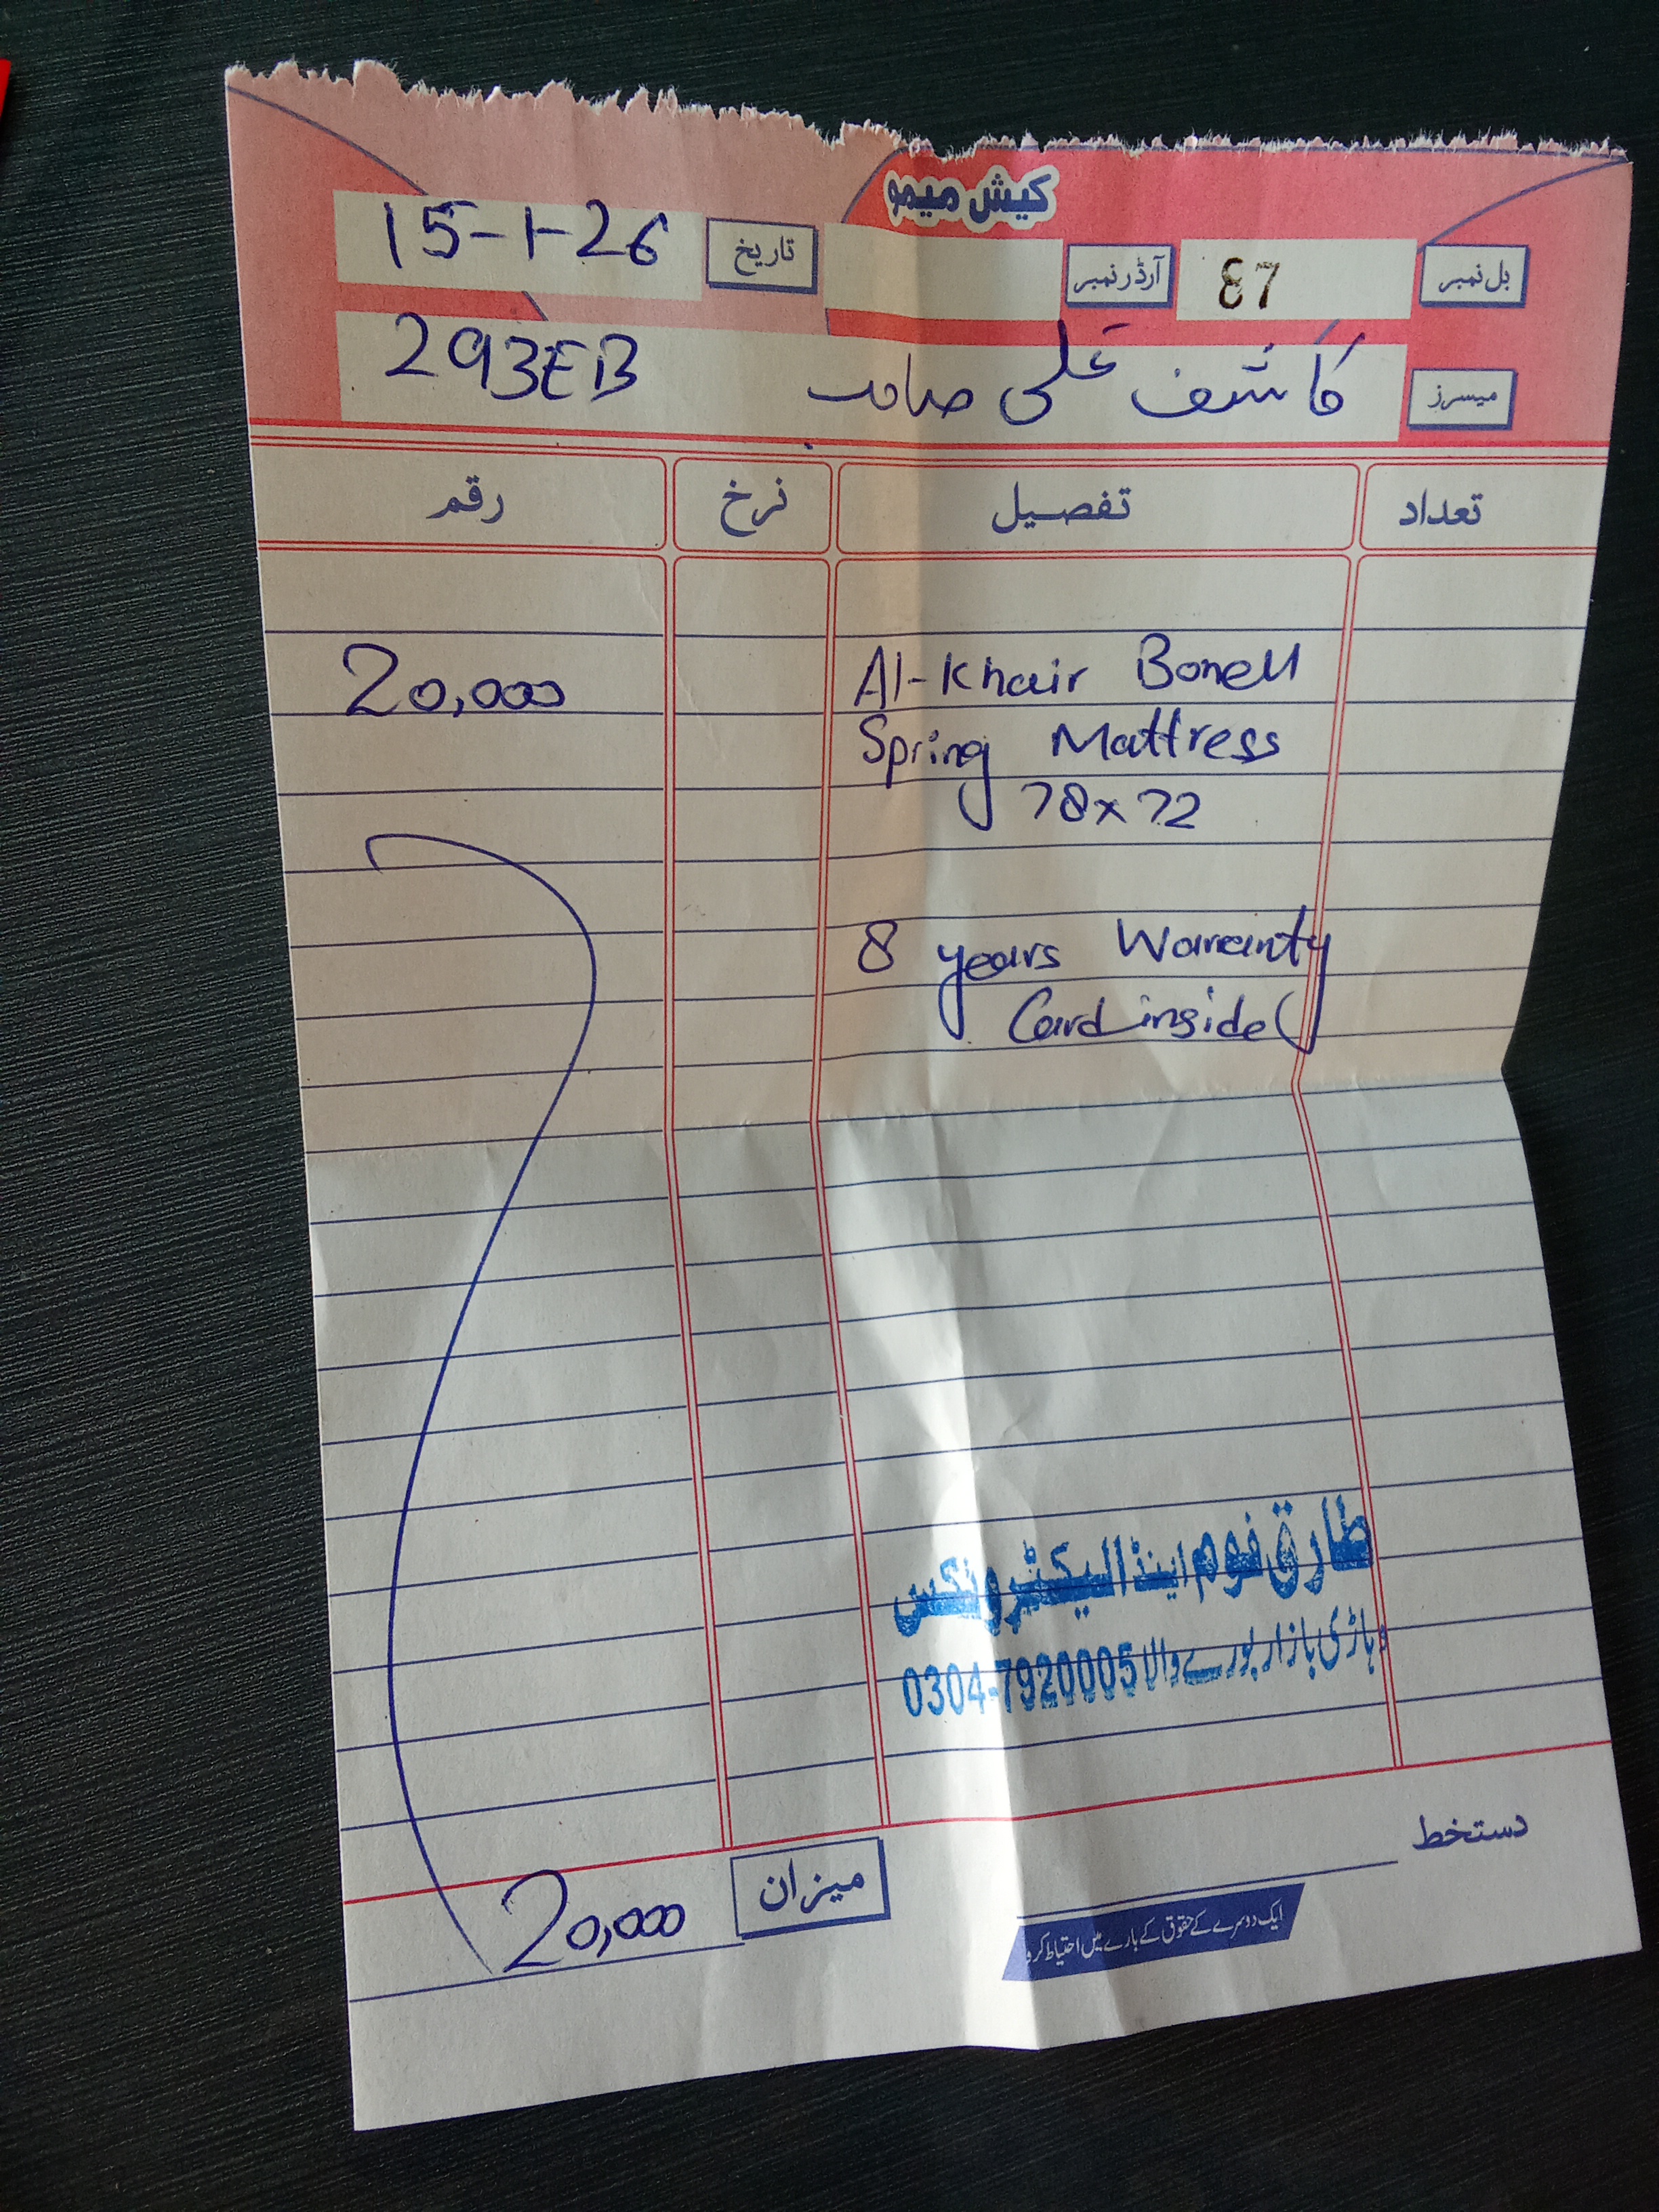 کیش میمو
بل نمبر 87 آرڈر نمبر تاریخ 15-1-26
میسرز کاشف علی صاحب 293EB
تعداد تفصیل نرخ رقم
Al-Khair Bonell 20,000
Spring Mattress
78x72
8 years Warranty
Card inside
طارق فوم اینڈ الیکٹرونکس
وہاڑی بازار بورے والا 0304-7920005
دستخط
میزان 20,000
ایک دوسرے کے حقوق کے بارے میں احتیاط کرو